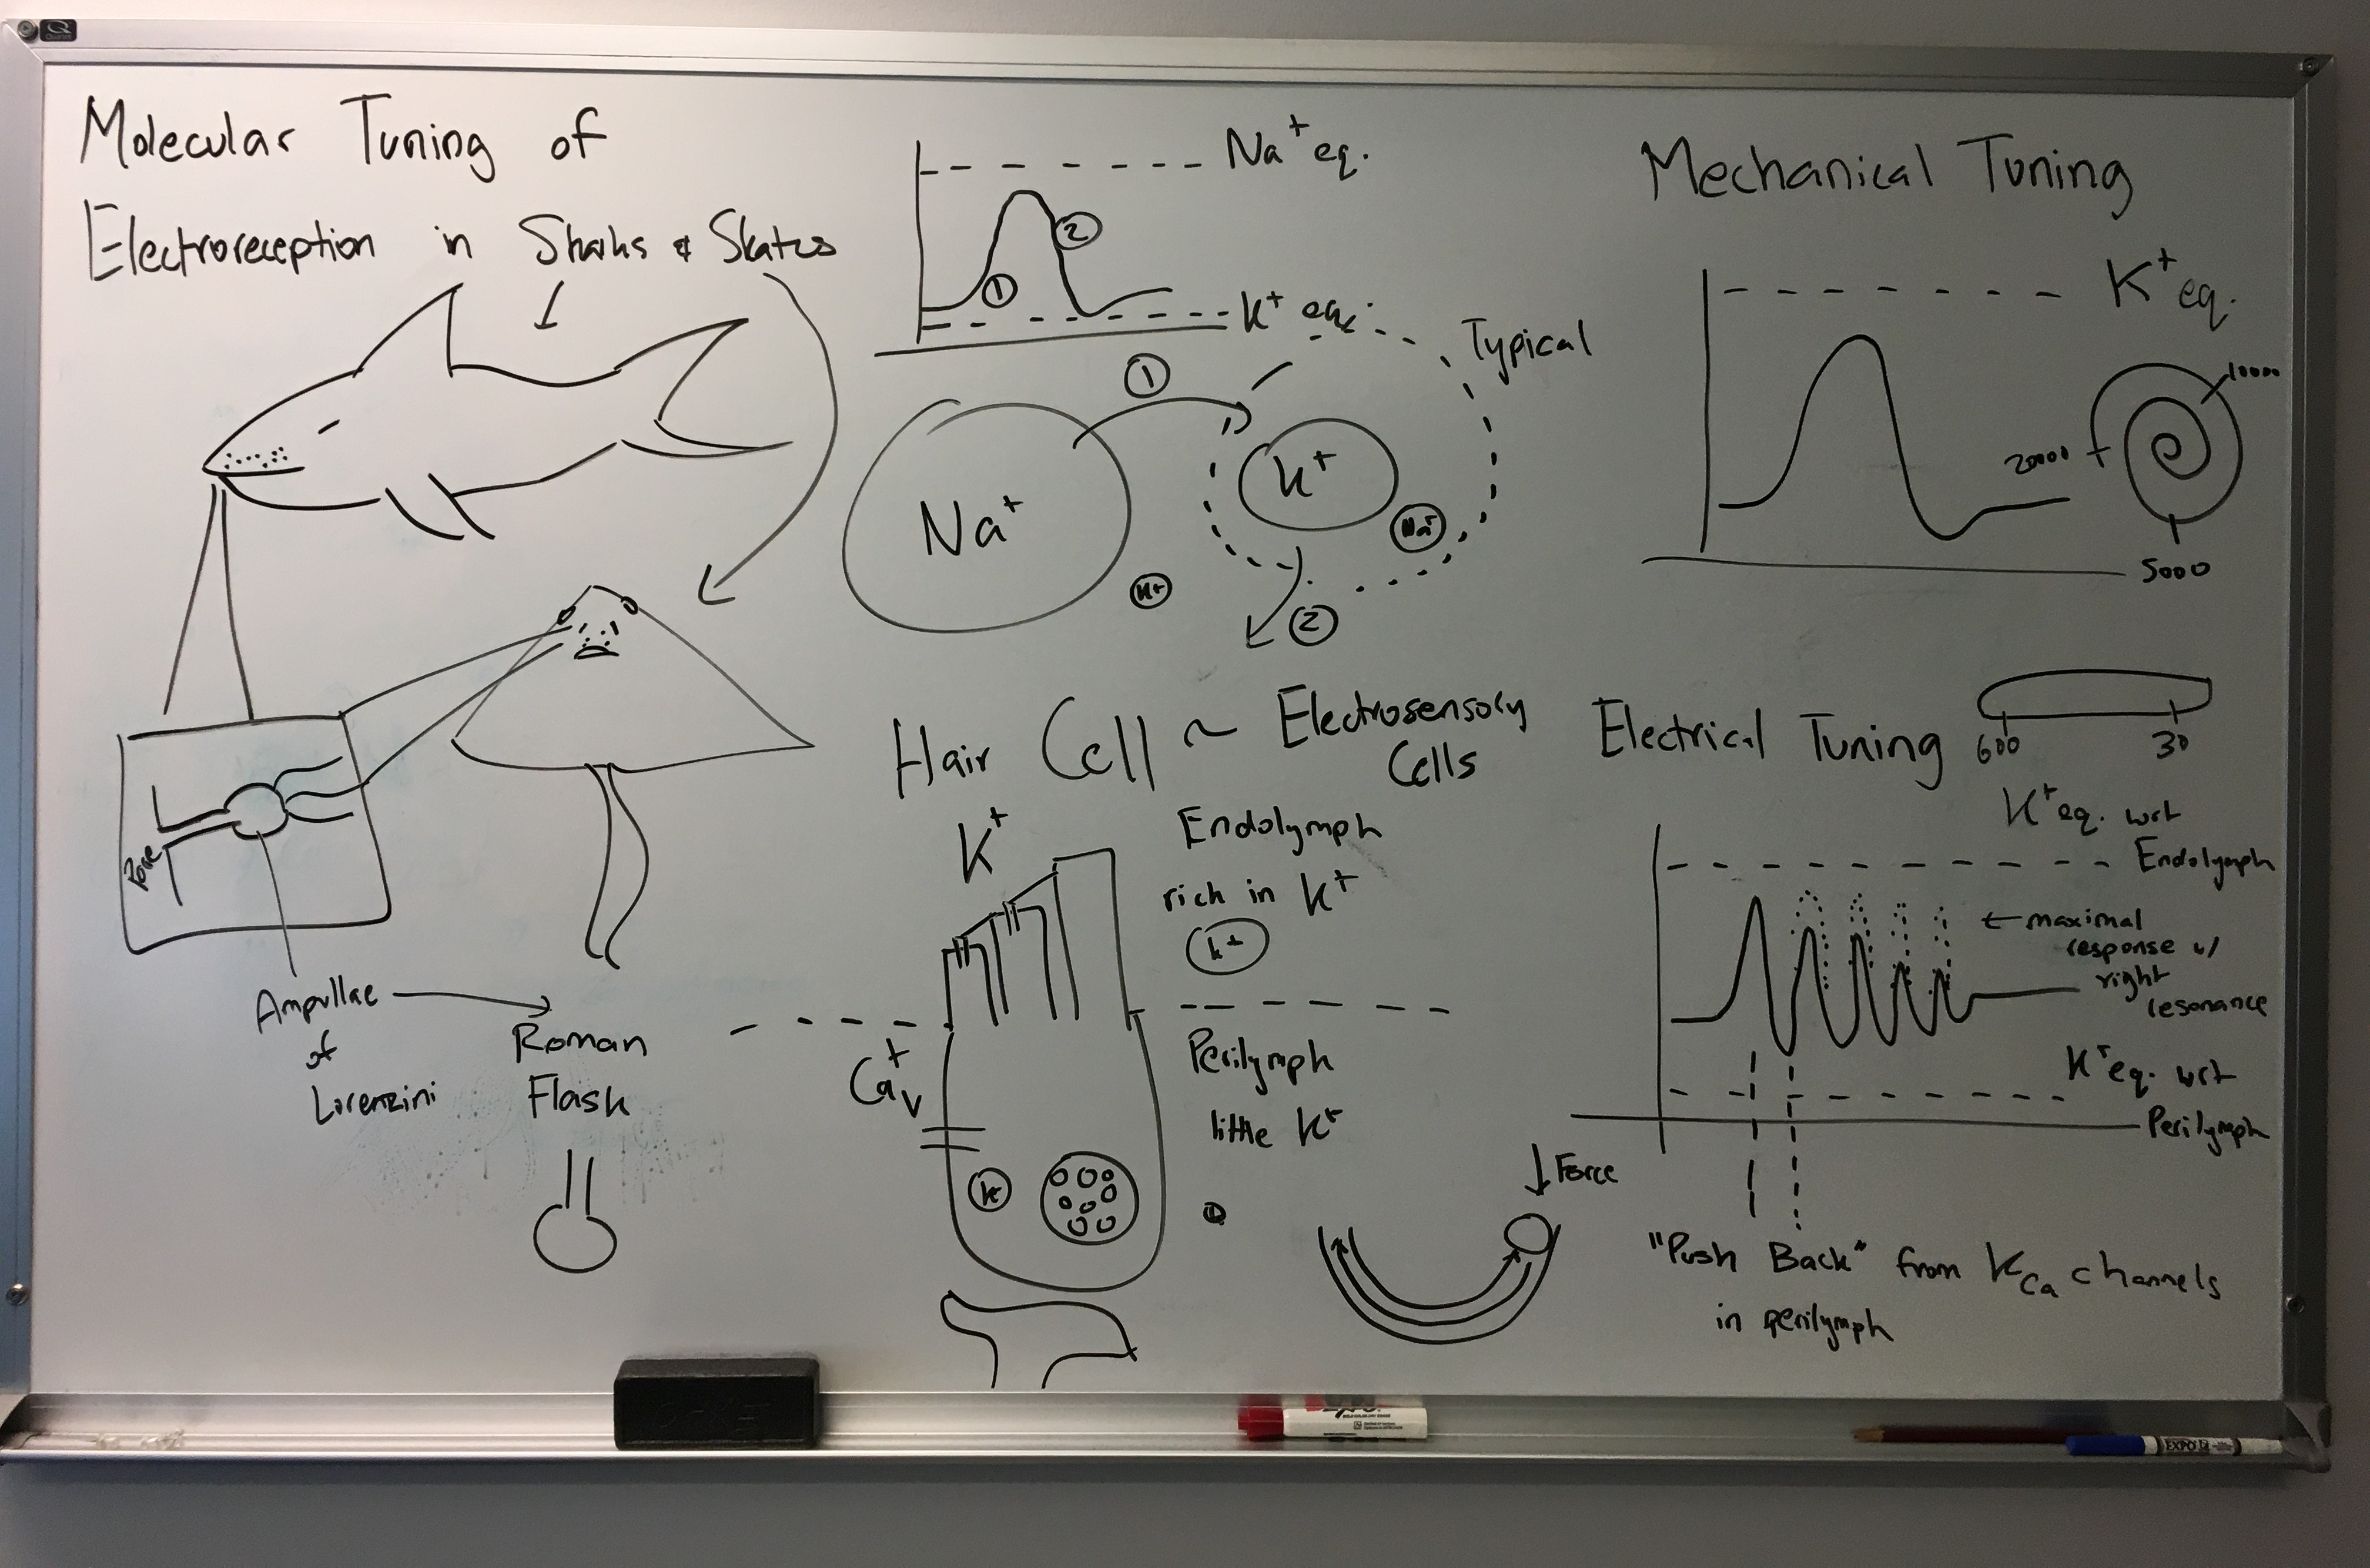 Molecular Tuning of
Electroreception in Sharks & Skates
Pore
Ampullae
of
Lorenzini
Roman
Flask
Na+ eq.
1
2
K+ eq.
Typical
1
Na+
K+
Na+
K+
2
Hair Cell ~ Electrosensory
Cells
K+
Endolymph
rich in K+
K+
Ca+v
Perilymph
little K+
K+
Force
Mechanical Tuning
K+ eq.
10000
20000
5000
Electrical Tuning
600
30
K+ eq. wrt
Endolymph
maximal
response w/
right
resonance
K+ eq. wrt
Perilymph
"Push Back" from KCa channels
in perilymph
EXPO